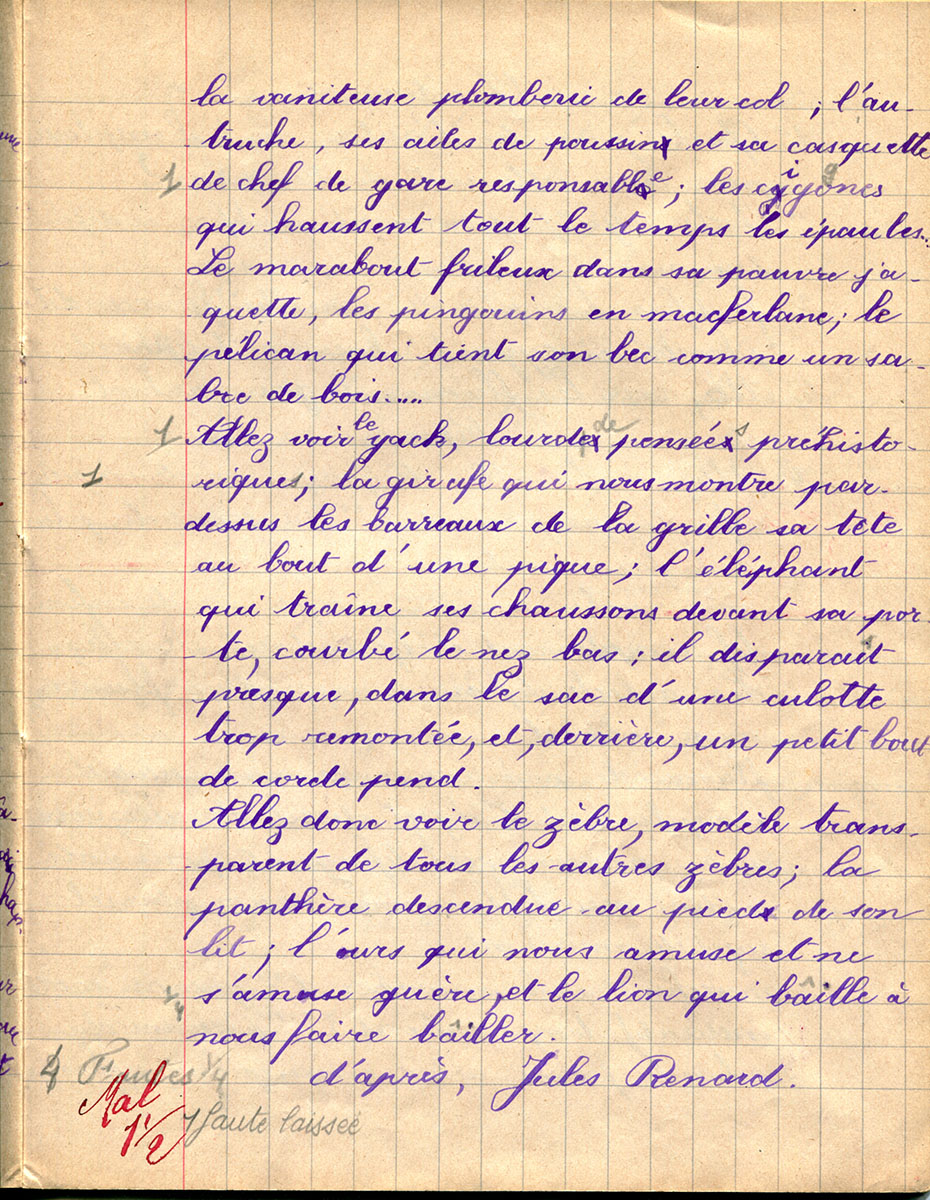 la vaniteuse plomberie de leur col ; l'au-
truche, ses ailes de poussin et sa casquette
1 de chef de gare responsable ; les cigognes
qui haussent tout le temps les épaules...
Le marabout frileux dans sa pauvre ja-
quette, les pingouins en macferlane; le
pélican qui tient son bec comme un sa-
bre de bois.....
1 Allez voir le yack, lourd de pensées préhisto-
1 riques; la girafe qui nous montre par-
dessus les barreaux de la grille sa tête
au bout d'une pique; l'éléphant
qui traîne ses chaussons devant sa por-
te, courbé le nez bas; il disparaît
presque, dans le sac d'une culotte
trop remontée, et, derrière, un petit bout
de corde pend.
Allez donc voir le zèbre, modèle trans-
parent de tous les autres zèbres; la
panthère descendue au pied de son
lit; l'ours qui nous amuse et ne
1/4 s'amuse guère, et le lion qui bâille à
nous faire bâiller.
4 Fautes 1/4 d'après, Jules Renard.
Mal
1 1/2
1 faute laissée